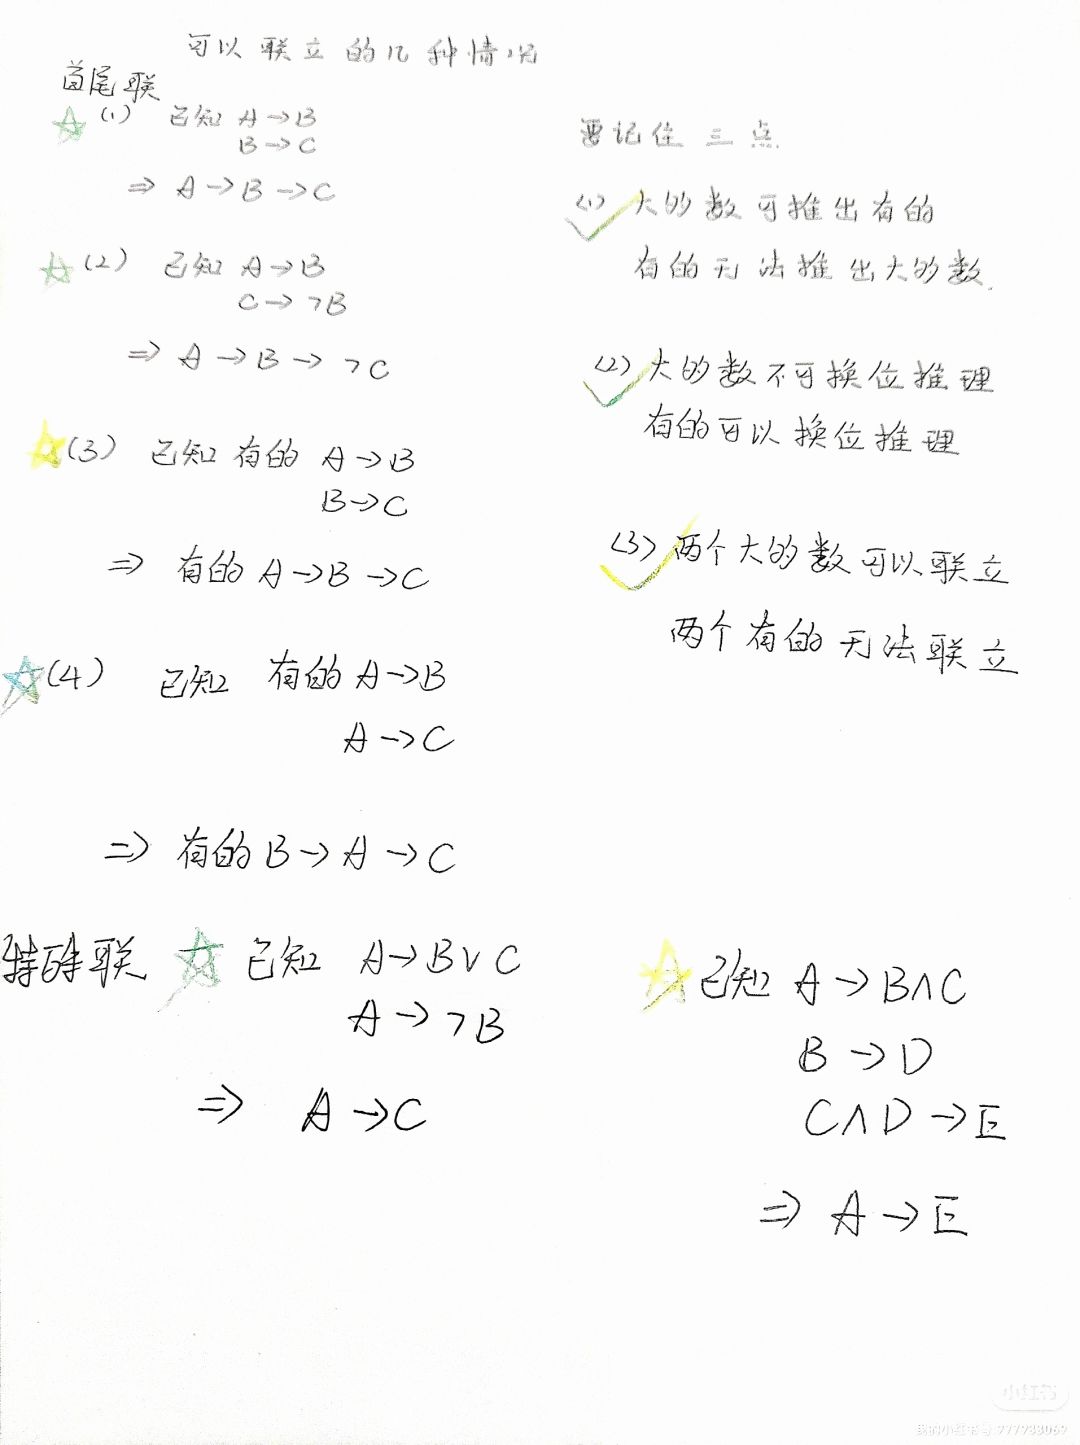 可以联立的几种情况
首尾联
(1) 已知 A→B
B→C
⇒ A→B→C
(2) 已知 A→B
C→¬B
⇒ A→B→¬C
(3) 已知 有的 A→B
B→C
⇒ 有的 A→B→C
(4) 已知 有的 A→B
A→C
⇒ 有的 B→A→C
要记住三点
(1) 大的数可推出有的
有的无法推出大的数.
(2) 大的数不可换位推理
有的可以换位推理
(3) 两个大的数可以联立
两个有的无法联立
特殊联 已知 A→B∨C
A→¬B
⇒ A→C
已知 A→B∧C
B→D
C∧D→E
⇒ A→E
小红书
我的小红书号 977988069